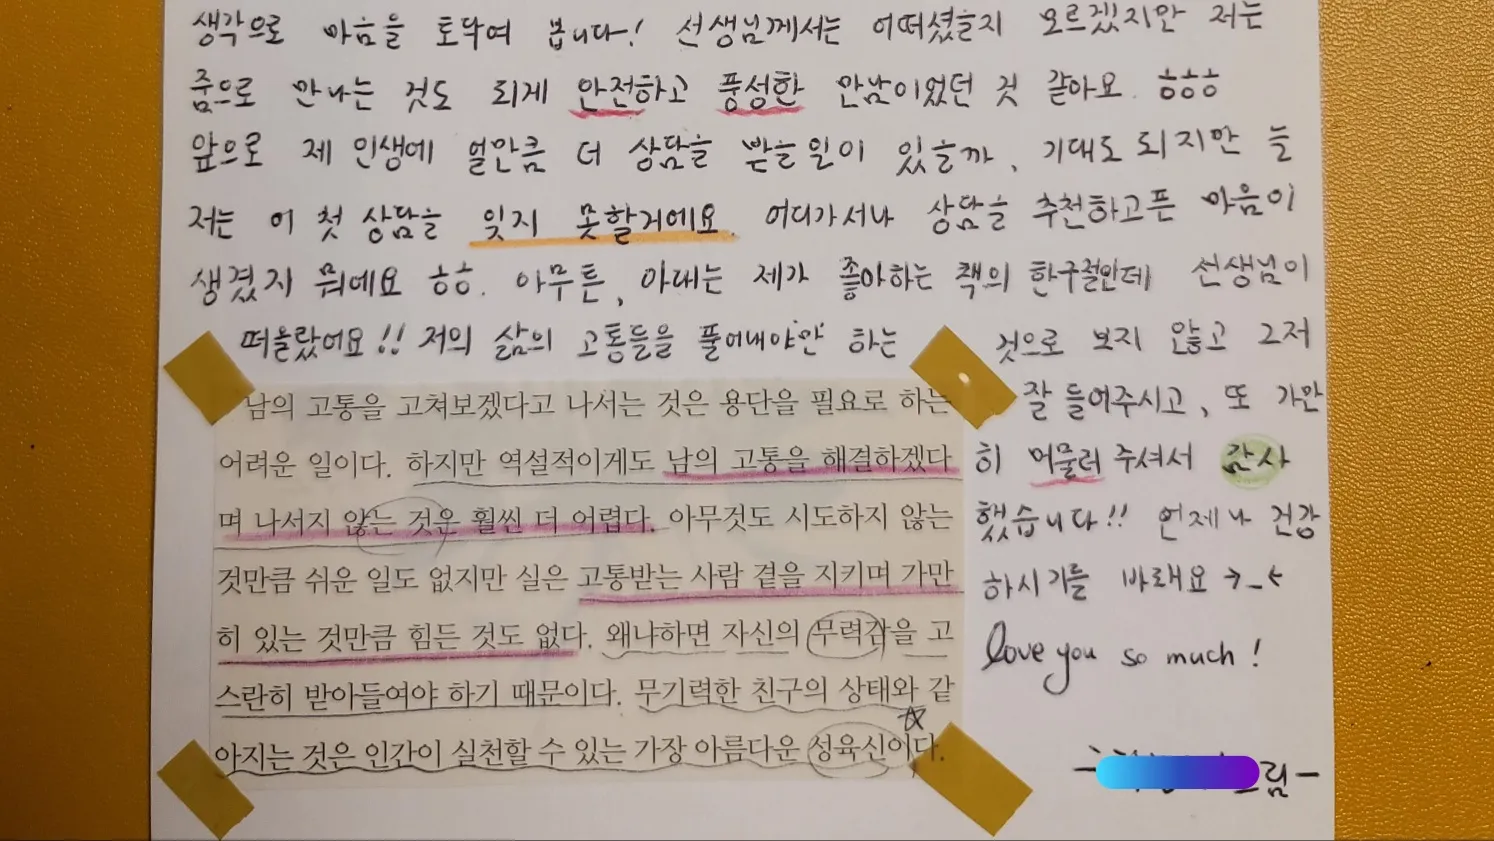 생각으로 마음을 토닥여 봅니다! 선생님께서는 어떠셨을지 모르겠지만 저는
줌으로 만나는 것도 되게 안전하고 풍성한 만남이었던 것 같아요. ㅎㅎㅎ
앞으로 제 인생에 얼만큼 더 상담을 받을일이 있을까, 기대도 되지만 늘
저는 이 첫 상담을 잊지 못할거에요. 어디가서나 상담을 추천하고픈 마음이
생겼지 뭐에요 ㅎㅎ. 아무튼, 아래는 제가 좋아하는 책의 한구절인데 선생님이
떠올랐어요!! 저의 삶의 고통들을 풀어내야만 하는 것으로 보지 않고 그저
잘 들어주시고, 또 가만
히 머물러 주셔서 감사
했습니다!! 언제나 건강
하시기를 바래요 >_<
love you so much!
드림 -
남의 고통을 고쳐보겠다고 나서는 것은 용단을 필요로 하는
어려운 일이다. 하지만 역설적이게도 남의 고통을 해결하겠다
며 나서지 않는 것은 훨씬 더 어렵다. 아무것도 시도하지 않는
것만큼 쉬운 일도 없지만 실은 고통받는 사람 곁을 지키며 가만
히 있는 것만큼 힘든 것도 없다. 왜냐하면 자신의 무력감을 고
스란히 받아들여야 하기 때문이다. 무기력한 친구의 상태와 같
아지는 것은 인간이 실천할 수 있는 가장 아름다운 성육신이다.